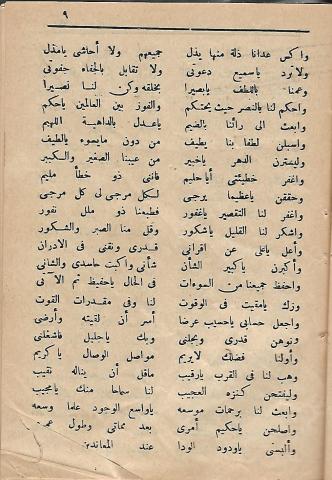 ٩
واكس عدانا ذلة منها يذل جميعهم ولا أحاشى يامذل
ولا ترد ياسميع دعوتى ولا تقابل بالجفاء جفوتى
وعمنا باللطف يابصيرا بخلقه وكن لنا نصيرا
واحكم لنا بالنصر حيث يحتكم والفوز بين العالمين ياحكم
وابعث الى رائنا بالضيم ياعدل بالداهية اللهيم
واسبلن لطفا بنا يطيف من دون مايسوء يالطيف
وليسترن الدهر ياخبير من عيبنا الصغير والكبير
واغفر خطيئتى أيا حليم فاننى ذو خطأ مليم
وحققن ياعظيما يرجى لكل مرجى لى كل مرجى
واغفر لنا التقصير ياغفور فطبعنا ذو ملل نفور
واشكر لنا القليل ياشكور وقل منا الصبر والشكور
وأعل ياعلى عن اقرانى قدرى ونقنى فى الادران
وأكبرن ياكبير الشأن شأنى واكبت حاسدى والشانى
واحفظ جميعنا من السوءات فى الحال ياحفيظ ثم الآتى
وزك يامقيت فى الوقوت لنا وفى مقدرات القوت
واجعل حسابى ياحسيب عرضا أسر أن لقيته وأرضى
ونوهن قدرى وبجلنى وبك ياجليل فاشغلنى
وأولنا فضلك لايريم مواصل الوصال ياكريم
وهب لنا فى القرب يارقيب ماقل أن يناله نقيب
وليفتحن كنزه العجيب لنا سماحا منك يامجيب
وابعث لنا برحمات موسعه ياواسع الوجود علما وسعه
واصلحن ياحكيم أمرى بعد مماتى وطول
وألبسنى ياودود الودا عند المعاندين